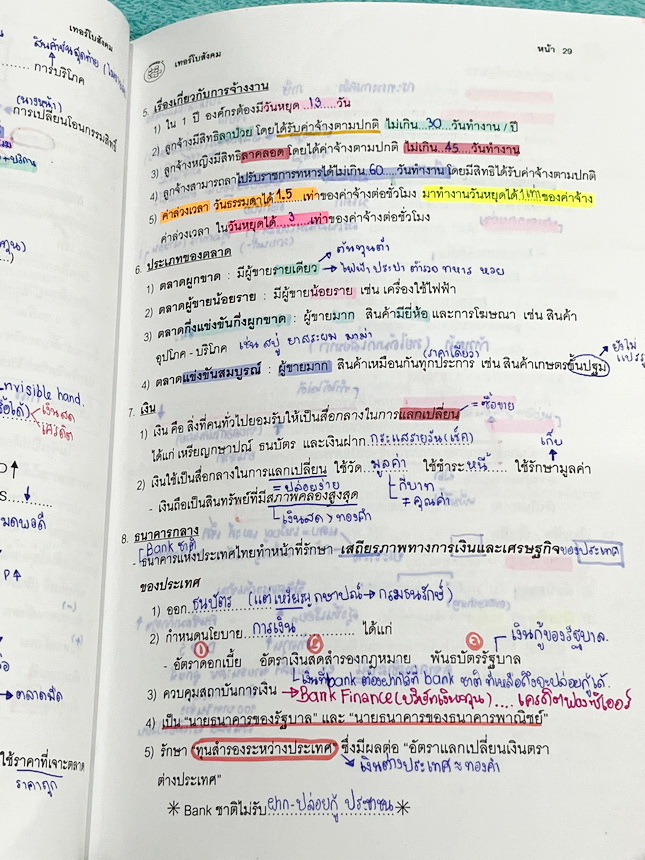 เทอร์โบสังคม
สินค้าขั้นสุดท้าย
การบริโภค
(นายหน้า)
การเปลี่ยนโอนกรรมสิทธิ์
+บริการ
invisible hand.
เงินสด
เครดิต
ตลาดมืด
ใช้ราคาที่เจาะตลาด
ราคาถูก
เทอร์โบสังคม
หน้า 29
5. เรื่องเกี่ยวกับการจ้างงาน
1) ใน 1 ปี องค์กรต้องมีวันหยุด 13 วัน
2) ลูกจ้างมีสิทธิลาป่วย โดยได้รับค่าจ้างตามปกติ ไม่เกิน 30 วันทำงาน / ปี
3) ลูกจ้างหญิงมีสิทธิลาคลอด โดยได้ค่าจ้างตามปกติ ไม่เกิน 45 วันทำงาน
4) ลูกจ้างสามารถลาไปรับราชการทหารได้ไม่เกิน 60 วันทำงาน โดยมีสิทธิได้รับค่าจ้างตามปกติ
5) ค่าล่วงเวลา วันธรรมดาได้ 1.5 เท่าของค่าจ้างต่อชั่วโมง มาทำงานวันหยุดได้ 1 เท่า ของค่าจ้าง
ค่าล่วงเวลา ในวันหยุดได้ 3 เท่าของค่าจ้างต่อชั่วโมง
6. ประเภทของตลาด
ต้นทุนต่ำ
1) ตลาดผูกขาด : มีผู้ขายรายเดียว → ไฟฟ้า ประปา ตำรวจ ทหาร หวย
2) ตลาดผู้ขายน้อยราย : มีผู้ขายน้อยราย เช่น เครื่องใช้ไฟฟ้า
3) ตลาดกึ่งแข่งขันกึ่งผูกขาด : ผู้ขายมาก สินค้ามียี่ห้อ และการโฆษณา เช่น สินค้า
อุปโภค - บริโภค เช่น สบู่ ยาสระผม มาม่า
(ราคาเดียว)
ยังไม่แปรรูป
4) ตลาดแข่งขันสมบูรณ์ : ผู้ขายมาก สินค้าเหมือนกันทุกประการ เช่น สินค้าเกษตรขั้นปฐม
7. เงิน
= ซื้อขาย
1) เงิน คือ สิ่งที่คนทั่วไปยอมรับให้เป็นสื่อกลางในการแลกเปลี่ยน
ได้แก่ เหรียญกษาปณ์ ธนบัตร และเงินฝาก กระแสรายวัน (เช็ค)
เก็บ
2) เงินใช้เป็นสื่อกลางในการแลกเปลี่ยน ใช้วัด มูลค่า ใช้ชำระ หนี้ ใช้รักษามูลค่า
= ปล่อยง่าย
กี่บาท
- เงินถือเป็นสินทรัพย์ที่มีสภาพคล่องสูงสุด
≠ คุณค่า
เงินสด > ทองคำ
8. ธนาคารกลาง
Bank ชาติ
- ธนาคารแห่งประเทศไทยทำหน้าที่รักษา เสถียรภาพทางการเงินและเศรษฐกิจของประเทศ
ของประเทศ
1) ออก ธนบัตร (แต่เหรียญกษาปณ์ → กรมธนารักษ์)
2) กำหนดนโยบาย การเงิน ได้แก่
① ② ③ เงินกู้ของรัฐบาล.
- อัตราดอกเบี้ย อัตราเงินสดสำรองกฎหมาย พันธบัตรรัฐบาล
เงินที่ bank ต้องฝากไว้ที่ bank ชาติ ที่เหลือถึงจะปล่อยกู้ได้.
3) ควบคุมสถาบันการเงิน → Bank Finance (บริษัทเงินทุน) .... เครดิตฟองซิเอออร์
4) เป็น "นายธนาคารของรัฐบาล" และ "นายธนาคารของธนาคารพาณิชย์"
5) รักษา ทุนสำรองระหว่างประเทศ ซึ่งมีผลต่อ "อัตราแลกเปลี่ยนเงินตรา
เงินต่างประเทศ ≈ ทองคำ
ต่างประเทศ"
✳ Bank ชาติไม่รับ ฝาก-ปล่อยกู้ ประชาชน ✳